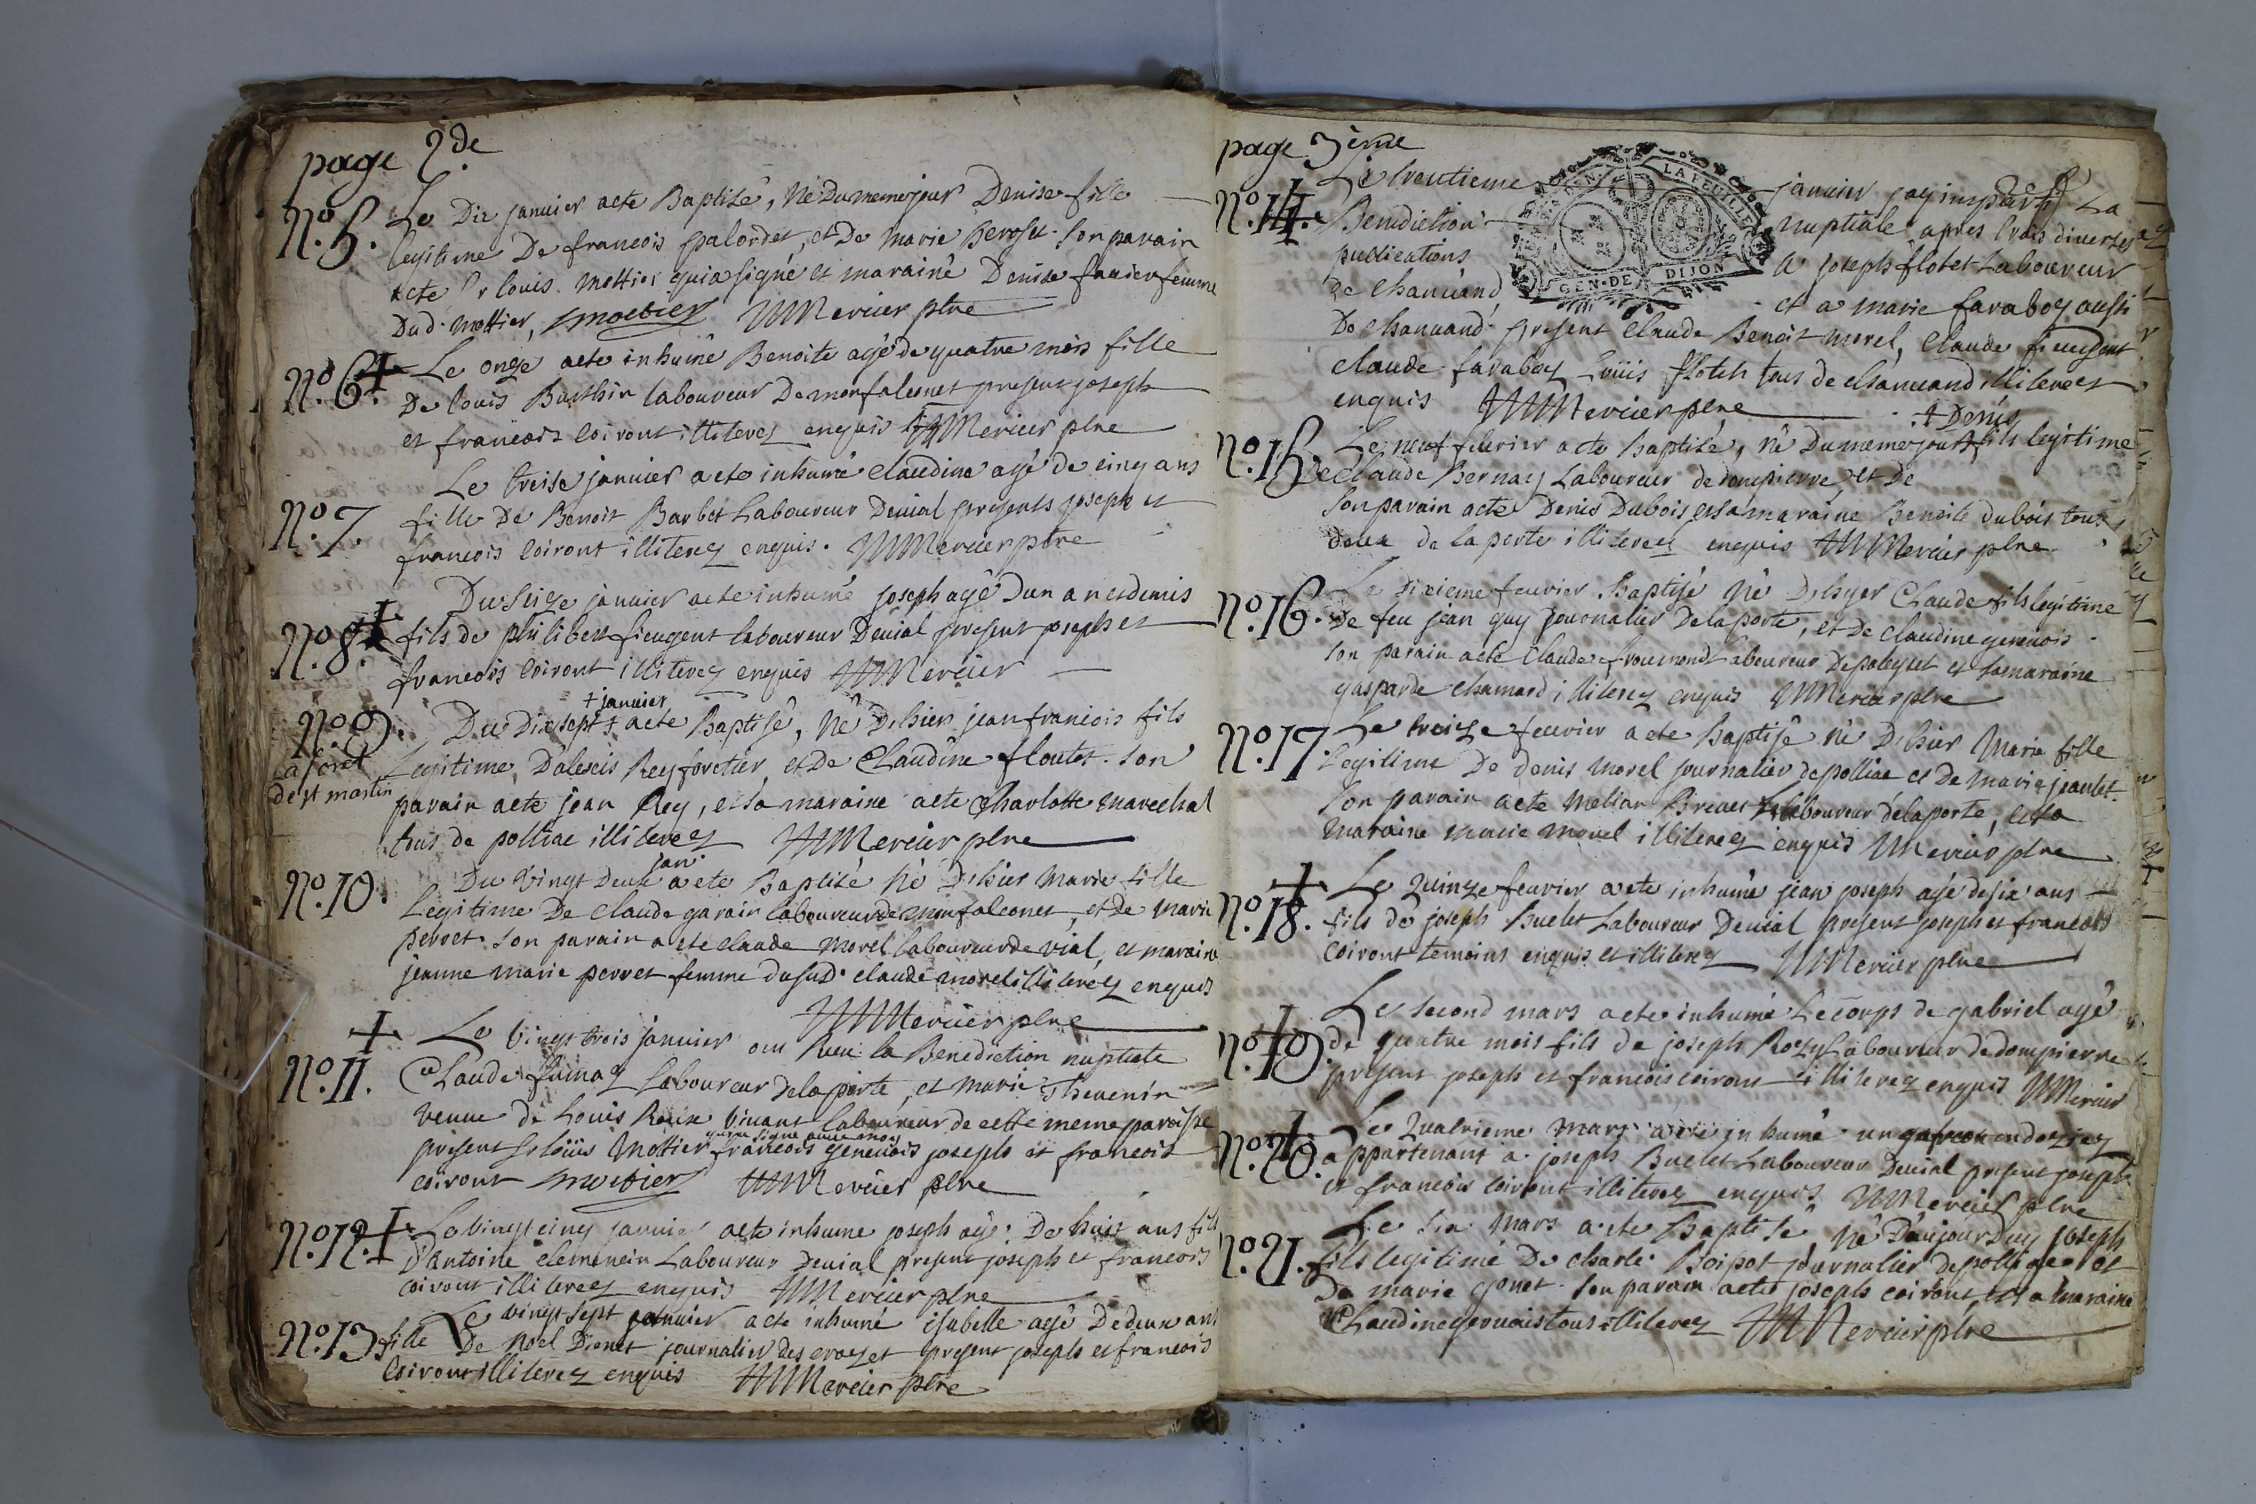 page 2de
N.o 5. Le Dix janvier a ete Baptisé, Né Du meme jour Denise fille
legitime De francois palordet, et De marie Son parain
a ete Sr louis mottier qui a signé et maraine Denise femme
Dud. mottier, mottier Mercier ptre
N.o 6. + Le onze a ete inhumé Benoite agé de quatre mois fille
De louis Burthin laboureur De monfalconet present joseph
et francois Coiront illiterez enquis Mercier ptre
Le treise janvier a ete inhumé Claudine agé de cinq ans
N.o 7. fille De Benoit Barbet Laboureur Deuial presents joseph et
francois Coiront illiterez enquis. Mercier ptre
Du Seize janvier a ete inhumé joseph agé Dun an et demis
N.o 8. + fils de philibert fieugent laboureur Deuial present joseph et
francois Coiront illiterez enquis Mercier
+ janvier
N.o 9. Du Dix sept + a ete Baptisé, Né D'hier jean francois fils
la foret Legitime D'alexis Rey foretier, et De Claudine floutet. Son
de st martin parain a ete jean Rey, et sa maraine a ete Charlotte marechal
tous de polliac illiterez Mercier ptre
jan.
N.o 10. Du Vingt Deux a ete Baptisé Né D'hier Marie fille
Legitime De Claude garain laboureur de monfalconet, et De marie
perret. Son parain a ete claude morel laboureur de vial, et maraine
jeanne marie perret femme du sud. claude morel illiterez enquis
Mercier ptre
+ Le Vingt trois janvier ont Reeu la Benediction nuptiale
N.o 11. Claude Laboureur de la porte, et marie Thevenin
veuue de Louis Roux vivant laboureur de cette meme paroisse
qui a signé avec moy
present Sr Loüis Mottier francois genevois joseph et francois
coiront mottier Mercier ptre
N.o 12. + Le vingt cinq janvier a ete inhumé joseph agé De huit ans fils
D'antoine Laboureur Deuial present joseph et francois
coiront illiterez enquis Mercier ptre
Le vingt sept janvier a ete inhumé isabelle agé De deux ans
N.o 13. fille De Noel journalier des present joseph et francois
Coiront illiterez enquis Mercier ptre
page 3ème
N.o 14. Le trentieme janvier jay imparti La
Benediction nuptiale apres trois diverses
publications a joseph flotet Laboureur
de Chanuand, et a marie faraboz aussi
De Chanuand present Claude Benoit morel, Claude fieugent
claude faraboz Loüis tous de chanuand illiterez
enquis Mercier ptre
+ Denis
N.o 15. Le neuf feurier a ete baptisé, né du meme jour + fils legitime
de Claude Bernaz Laboureur de dompierre, et De
Son parain a ete Denis Dubois et sa maraine Benoite dubois tous
deux de la porte illiterez enquis Mercier ptre
N.o 16. Le dixieme feurier Baptisé Né D'hyer Claude fils legitime
De feu jean guy journalier de la porte, et De Claudine genevois
Son parain a ete Claude froumond Laboureur De et sa maraine
gasparde Chamard illiterez enquis Mercier ptre
N.o 17. Le treize feurier a ete Baptisé Né D'hier Marie fille
Legitime De denis morel journalier de polliac et De marie
Son parain a ete laboureur de la porte, et sa
maraine marie morel illiterez enquis Mercier ptre
N.o 18. + Le Quinze feurier a ete inhumé jean joseph agé de six ans
fils de joseph Buelet Laboureur Deuial present joseph et francois
Coiront temoins enquis et illiterez Mercier ptre
Le second mars a ete inhumé Le corps de gabriel agé
N.o 19. + de quatre mois fils de joseph Laboureur de dompierre
present joseph et francois coiront illiterez enquis Mercier
Le Quatrieme mars a ete inhumé un
N.o 20. + appartenant a joseph Buelet Laboureur Deuial present joseph
et francois Coiront illiterez enquis Mercier ptre
N.o 21. Le Six mars a ete Baptisé Né D'aujourduy joseph
fils legitime De Charle Boipot journalier de polliac et
De marie gonet. Son parain a ete joseph coiront, et sa maraine
Claudine genevois tous illiterez Mercier ptre
LA FEUILLE
GEN·DE DIJON